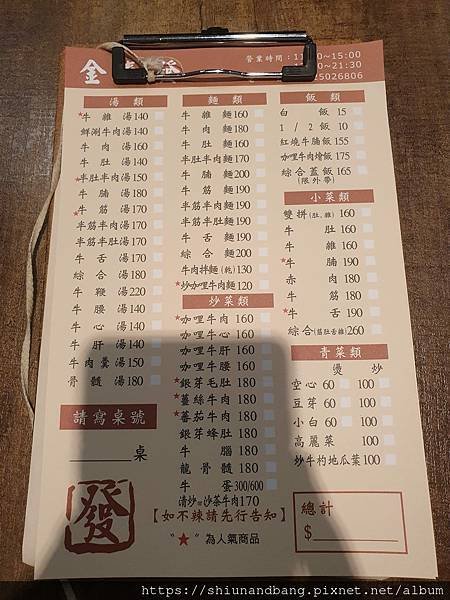 金
營業時間：11
0~15:00
0~21:30
25026806
湯類
★牛雜湯140
鮮涮牛肉湯140
牛肉湯160
牛肚湯140
★半肚半肉湯150
牛腩湯180
★牛筋湯170
半筋半肉湯170
半筋半肚湯170
牛舌湯170
綜合湯180
牛鞭湯220
牛腰湯140
牛心湯140
牛肝湯140
牛肉羹湯150
骨髓湯180
請寫桌號
桌
發
麵類
牛雜麵160
牛肉麵180
牛肚麵160
半肚半肉麵170
牛腩麵200
牛筋麵190
半筋半肉麵190
半筋半肚麵190
牛舌麵190
綜合麵200
牛肉拌麵(乾)130
★炒咖哩牛肉麵120
炒菜類
★咖哩牛肉160
咖哩牛心160
咖哩牛肝160
咖哩牛腰160
★銀芽毛肚180
★薑絲牛肉180
★蕃茄牛肉180
銀芽蜂肚180
牛腦180
龍骨髓180
牛蛋300/600
清炒or沙茶牛肉170
【如不辣請先行告知】
"★"為人氣商品
飯類
白飯15
1/2飯10
紅燒牛腩飯155
咖哩牛肉燴飯175
綜合蓋飯165
(限外帶)
小菜類
雙拼(肚.雜)160
牛肚160
牛雜160
★牛腩190
赤肉180
牛筋180
★牛舌190
綜合(筋肚舌雜)260
青菜類
燙 炒
空心60 100
豆芽60 100
小白60 100
高麗菜100
炒牛杓地瓜葉100
總計
$
https://shiunandbang.pixnet.net/album